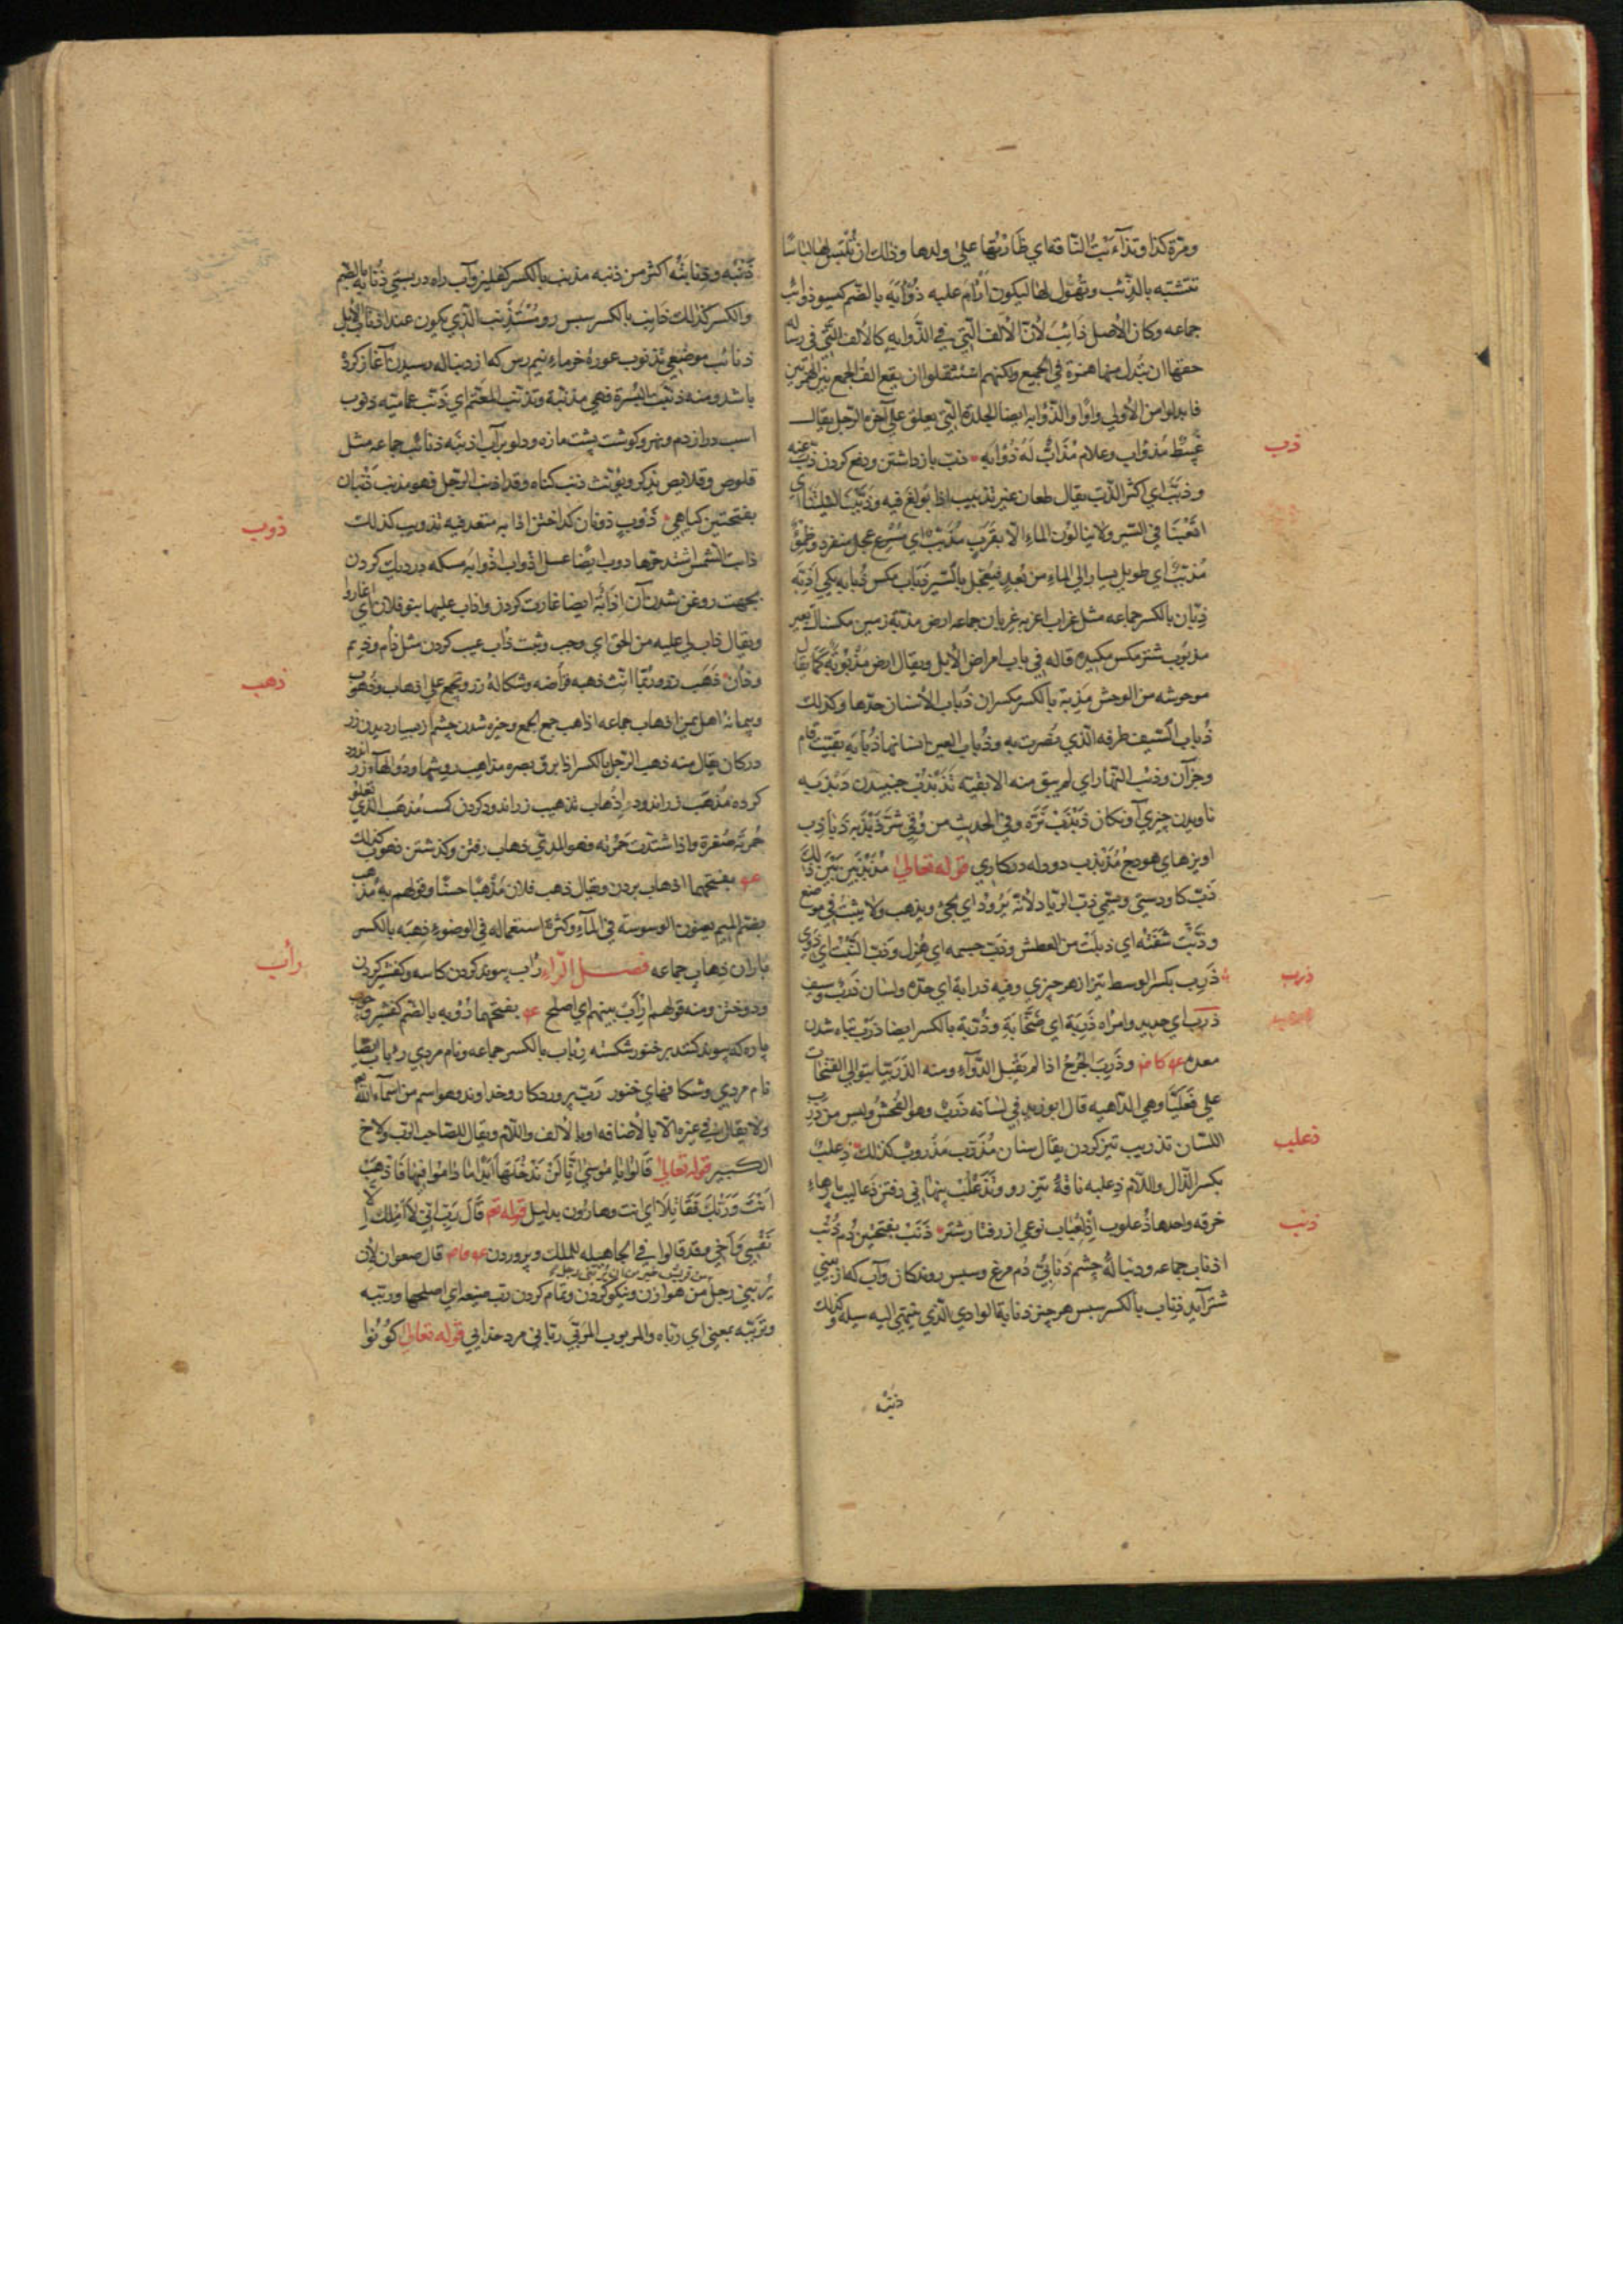 ومرة كذا وتذاءبت الناقة اي ظارتها علي ولدها وذلك ان تلبس لها لباسا
تتشبه بالذئب وتهول لها ليكون ارام عليه ذؤابه بالضم كيسو ذوائب
جماعه وكان الاصل ذائب لان الالف التي في الذوابه كالالف التي في رساله
حقها ان تبدل منها همزة في الجميع ولكنهم استثقلوا ان يقع الف الجمع بين الهمزتين
فابدلوا من الاولي واوا والذؤابه ايضا الجلدة التي يعلق علي آخرة الرحل يقال
غبيط مذؤاب وغلام مذأب له ذؤابه ذب بازداشتن ودفع كردن ذب عنه
وذبب اي اكثر الذب يقال طعان غير تذبيب اذا بولغ فيه وذببنا ليلتنا اي
اتعبنا في السير ولا ينالون الماء الا بقرب مذبب اي مسرع عجل منفرد وظمؤ
مذبب اي طويل يسار الي الماء من بعد فيعجل بالسير ذباب مكس ذبابه يكي اذبة
ذبان بالكسر جماعه مثل غراب اغربه غربان جماعه ارض مذبة زمين مكسناك بعير
مذبوب شتر مكس مكيده قاله في باب امراض الابل ويقال ارض مذبوبة كما يقال
موحوشه من الوحش مذبة بالكسر مكس ران ذباب الانسان حدها وكذلك
ذباب السيف طرفه الذي يضرب به وذباب العين انسانها ذبابه بقيت فام
وجز آن وذبب النهار اي لم يبق منه الا بقية تذبذب جنبيدن ذبذبه
ناويدن چيزي آونكان ذبذب نره وفي الحديث من وقي شر ذبذبه ذباذب
اويزهاي هودج مذبذب دودله دركاري قوله تعالي مذبذبين بين ذلك
ذب كاو دستي وسمي ذب الرياد لانه يرود اي يجئ ويذهب ولا يثبت في موضع
وذبت شفته اي ذبلت من العطش وذب جسمه اي هزل وذب النبت اي ذوي
ذرب بكسر الوسط تيز از هر چيزي وفيه ذرابة اي حده ولسان ذرب وسيف
ذرب اي حديد وامراه ذربة اي صخابة وذربة بالكسر ايضا ذرب تباه شدن
معده وذرب الجرح اذا لم يقبل الدواء ومنه الذربيا بتوالي الفتحات
علي فعليا وهي الداهيه قال ابو زيد في لسانه ذرب وهو الفحش وليس من ذرب
اللسان تذريب تيز كردن يقال سنان مذرب مذروب كذلك ذعلب
بكسر الذال واللام ذعلبه ناقة تيز رو وتذعلب پنهاني رفتن ذعاليب پارهاء
خرقه واحدها ذعلوب اذلعباب نوعي از رفتار شتر ذنب بفتحتين دم ذنب
اذناب جماعه ودنباله چشم ذنابي دم مرغ وسپس روندكان وآب كه از بيني
شتر آيد ذناب بالكسر سپس هر چيز ذنابة الوادي الذي ينتهي اليه سيله وكذلك
ذنبه
ذب
ذرب
ذعلب
ذنب
ذنبه وذنابته اكثر من ذنبه مذنب بالكسر كفليز وآب راه در پستي ذنابه بالضم
والكسر كذلك ذانب بالكسر سپس رو مستذنب الذي يكون عند اذناب الابل
ذنائب موضعي تذنوب غوره خرماء نيم رس كه از دنباله رسيدن آغاز كرده
باشد ومنه ذنبت البسرة فهي مذنبة وتذنب المعتم اي ذنب عمامته ذنوب
اسب دراز دم وبهره وكوشت پشت مازه ودلو پر آب اذنبه ذنائب جماعه مثل
قلوص وقلايص يذكر ويؤنث ذنب كناه وقد اذنب الرجل فهو مذنب ذنبان
بفتحتين كياهي ذوب ذوبان كداختن اذابه متعد فيه تذويب كذلك
ذابت الشمس اشتد حرها ذوب ايضا عسل اذواب اذوابه مسكه در ديك كردن
بجهت روغن شدن آن اذابه ايضا غارت كردن واذاب عليها بنو فلان اي اغاروا
ويقال ذاب لي عليه من الحق اي وجب وثبت ذاب عيب كردن مثل ذام وذيم
وذان ذهب زر وربما انث ذهبه قراضه وشكاله زر ويجمع علي اذهاب وذهوب
وپيمانه اهل يمن اذهاب جماعه اذاهب جمع الجمع وخيره شدن چشم از بسيار ديدن زر
در كان يقال منه ذهب الرجل بالكسر اذا برق بصره مذاهب روشها ودوالهاء زر اندود
كرده مذهب زر اندوده اذهاب تذهيب زر اندود كردن كسب مذهب الذي تعلو
حمرته صفرة واذا اشتدت حمرته فهو المدمي ذهاب رفتن وكذشتن ذهوب كذلك
بفتحهما اذهاب بردن ويقال ذهب فلان مذهبا حسنا وقولهم به مذهب
بفتح الميم يعنون الوسوسة في الماء وكثرة استعماله في الوضوء ذهبه بالكسر
باران ذهاب جماعه فصل الراء راب پيوند كردن كاسه وكفشير كردن
ودوختن ومنه قولهم ارأب بينهم اي اصلح بفتحهما رؤبه بالضم كفشير وچوب
پاره كه پيوند كنند بر خنور شكسته رئاب بالكسر جماعه ونام مردي رئاب ايضا
نام مردي وشكافهاي خنور رب پروردكار وخداوند وهو اسم من اسماء الله تعالى
ولا يقال في غيره الا بالاضافه او بالالف واللام ويقال للصاحب الرب ولاخ
الكبير قوله تعالي قالوا يا موسي انا لن ندخلها ابدا ما داموا فيها فاذهب
انت وربك فقاتلا اي انت وهارون بدليل قوله تع قال رب اني لا املك الا
نفسي واخي وقد قالوا في الجاهليه للملك وپروردن قال صفوان لان
من قريش خير من ان يربني رجل
يربني رجل من هوازن ونيكو كردن وتمام كردن رب ضيعه اي اصلحها ورببه
وتربيه بمعني اي رباه والمربوب المربي رباني مرد خدايي قوله تعالي كونوا
ذوب
ذهب
رأب